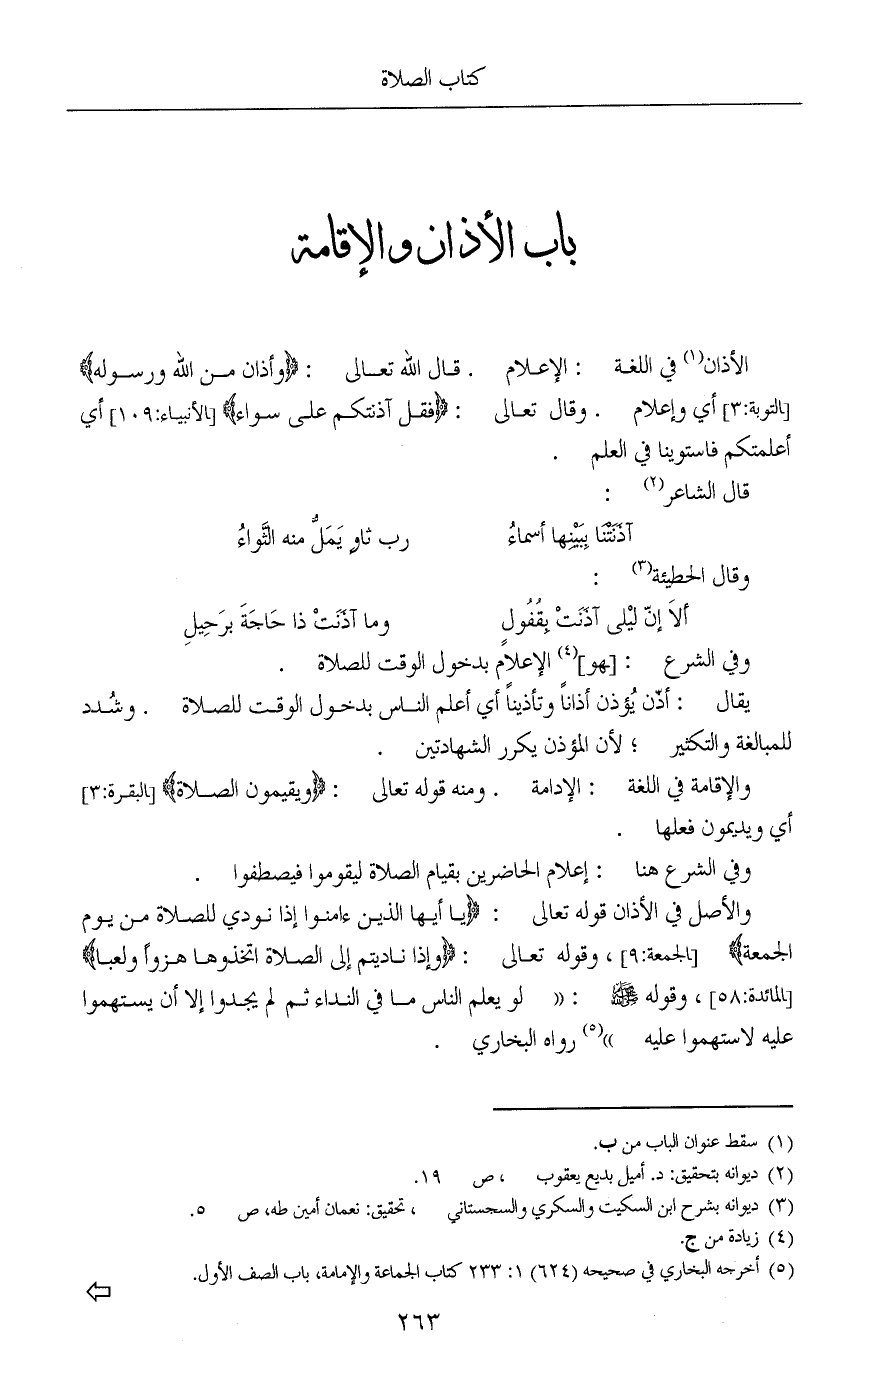 كتاب الصلاة
باب الأذان والإقامة
الأذان(١) في اللغة : الإعلام . قال الله تعالى : ﴿وأذان من الله ورسوله﴾
[التوبة:٣] أي وإعلام . وقال تعالى : ﴿فقل آذنتكم على سواء﴾ [الأنبياء:١٠٩] أي
أعلمتكم فاستوينا في العلم .
قال الشاعر(٢) :
آذَنَتْنَا بِبَيْنِها أسماءُ رب ثاوٍ يَمَلُّ منه الثَّواءُ
وقال الحطيئة(٣) :
ألاَ إنّ ليْلى آذَنَتْ بِقُفُولٍ وما آذَنَتْ ذا حَاجَةَ برَحِيلِ
وفي الشرع : [هو](٤) الإعلام بدخول الوقت للصلاة .
يقال : أذّن يُؤذن أذاناً وتأذيناً أي أعلم الناس بدخول الوقت للصلاة . وشُدد
للمبالغة والتكثير ؛ لأن المؤذن يكرر الشهادتين .
والإقامة في اللغة : الإدامة . ومنه قوله تعالى : ﴿ويقيمون الصلاة﴾ [البقرة:٣]
أي ويديمون فعلها .
وفي الشرع هنا : إعلام الحاضرين بقيام الصلاة ليقوموا فيصطفوا .
والأصل في الأذان قوله تعالى : ﴿يا أيها الذين ءامنوا إذا نودي للصلاة من يوم
الجمعة﴾ [الجمعة:٩] ، وقوله تعالى : ﴿وإذا ناديتم إلى الصلاة اتخذوها هزواً ولعبا﴾
[المائدة:٥٨] ، وقوله ﷺ : (( لو يعلم الناس ما في النداء ثم لم يجدوا إلا أن يستهموا
عليه لاستهموا عليه ))(٥) رواه البخاري .
(١) سقط عنوان الباب من ب.
(٢) ديوانه بتحقيق: د. أميل بديع يعقوب ، ص ١٩.
(٣) ديوانه بشرح ابن السكيت والسكري والسجستاني ، تحقيق: نعمان أمين طه، ص ٥.
(٤) زيادة من ج.
(٥) أخرجه البخاري في صحيحه (٦٢٤) ١: ٢٣٣ كتاب الجماعة والإمامة، باب الصف الأول.
٢٦٣